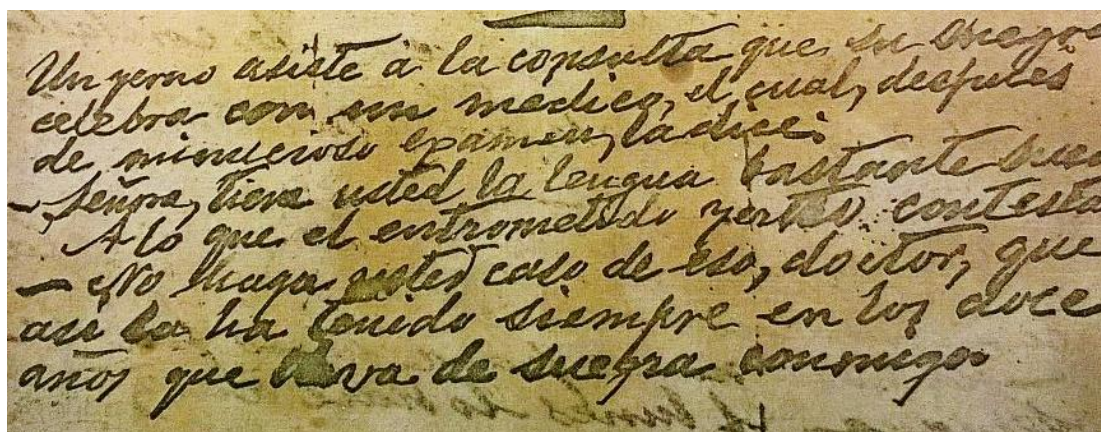 Un yerno asiste a la consulta que su suegra
celebra con un medico, el cual, después
de minucioso examen, la dice:
- Señora, tiene usted la lengua bastante sucia
A lo que el entrometido yerno contesta
- No haga usted caso de eso, doctor, que
asi la ha tenido siempre en los doce
años que lleva de suegra conmigo